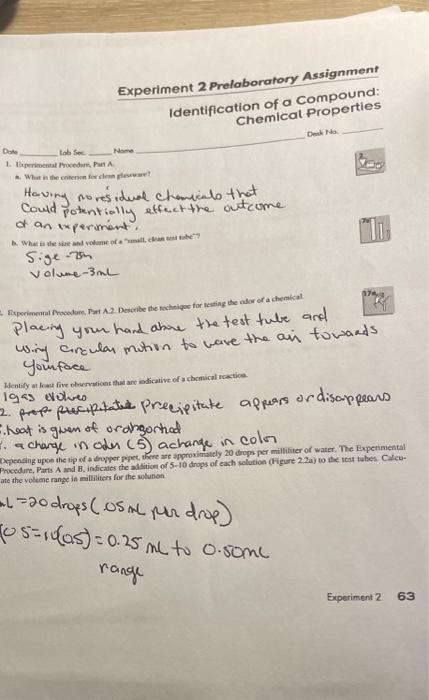 Experiment 2 Prelaboratory Assignment
Identification of a Compound:
Chemical Properties
Date Lab Sec. Name Desk No.
1. Experimental Procedure, Part A.
a. What is the criterion for clean glassware?
Having no residual chemicals that
Could potentially effect the outcome
of an experiment.
b. What is the size and volume of a "small, clean test tube"?
Size -75m
volume-3mL
. Experimental Procedure, Part A.2. Describe the technique for testing the odor of a chemical.
Placing your hand above the test tube and
using circular motion to wave the air towards
your face
Identify at least five observations that are indicative of a chemical reaction.
1 gas evolves
2. Precipitate appears or disappears
. heat is given of or absorbed
. a change in odor (5) a change in color
Depending upon the tip of a dropper pipet, there are approximately 20 drops per milliliter of water. The Experimental
Procedure, Parts A and B, indicates the addition of 5–10 drops of each solution (Figure 2.2a) to the test tubes. Calcu-
ate the volume range in milliliters for the solution.
mL = 20 drops (.05 mL per drop)
= 0.25 mL to 0.50mL
range
Experiment 2 63